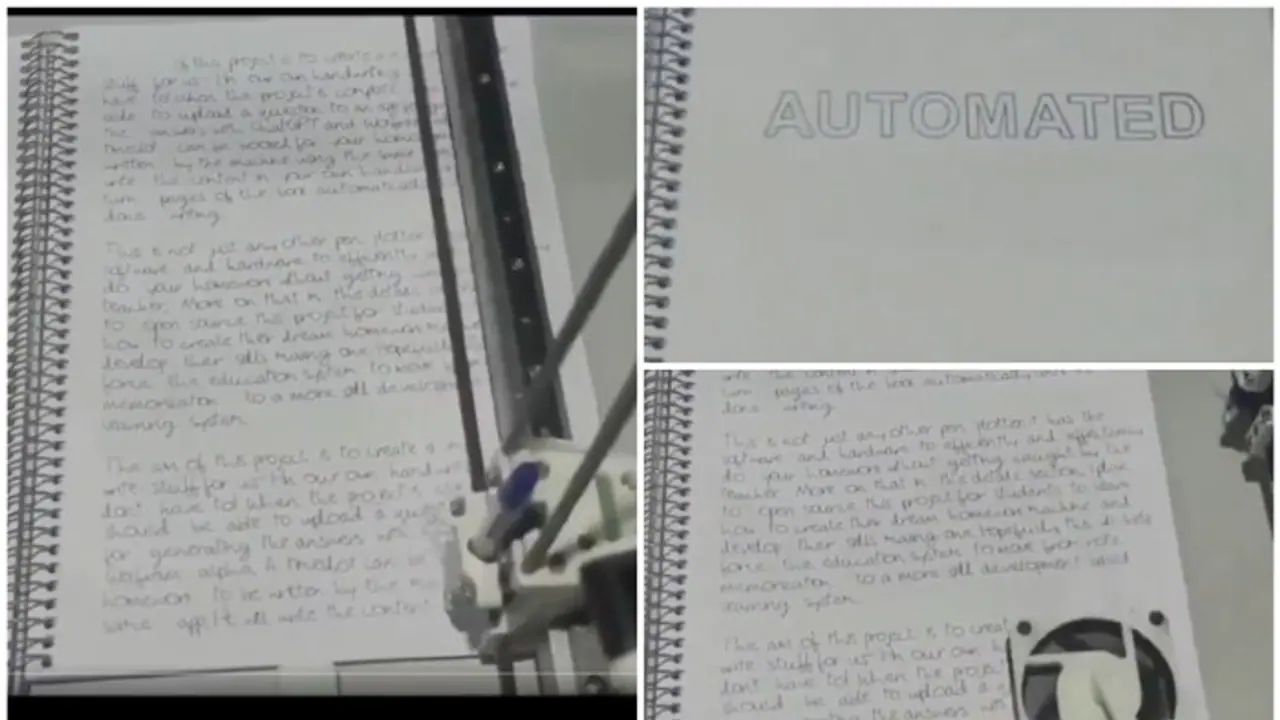 of this project is to create a
stuff for us in our own handwriting
have to! when the project is complete
able to upload a question to an app
the answers with ChatGPT and Wolfram
can be for your homework
written by the machine using the same
write the content in your own handwriting
turn pages of the book automatically
done writing.
This is not just any other pen plotter
software and hardware to efficiently
do your homework without getting
teacher. More on that in the details
to open source this project for students
how to create their dream homework machine
develop their skills making one. Hopefully
force the education system to move
memorization to a more skill development
learning system.
The aim of this project is to create a
write stuff for us in our own hand
don't have to! when the project is
should be able to upload a
for generating the answers with
wolfram alpha. A timeslot can be
homework to be written by the
same app. It will write the content
AUTOMATED
write the content in
turn pages of the book automatically
done writing.
This is not just any other pen plotter it has the
software and hardware to efficiently and effectively
do your homework without getting caught by the
teacher. More on that in the details section. I plan
to open source this project for students to learn
how to create their dream homework machine and
develop their skills making one. Hopefully this will help
force the education system to move from rote
memorization to a more skill development based
learning system.
The aim of this project is to creat
write stuff for us in our own h
don't have to! when the project
should be able to upload a
the answers